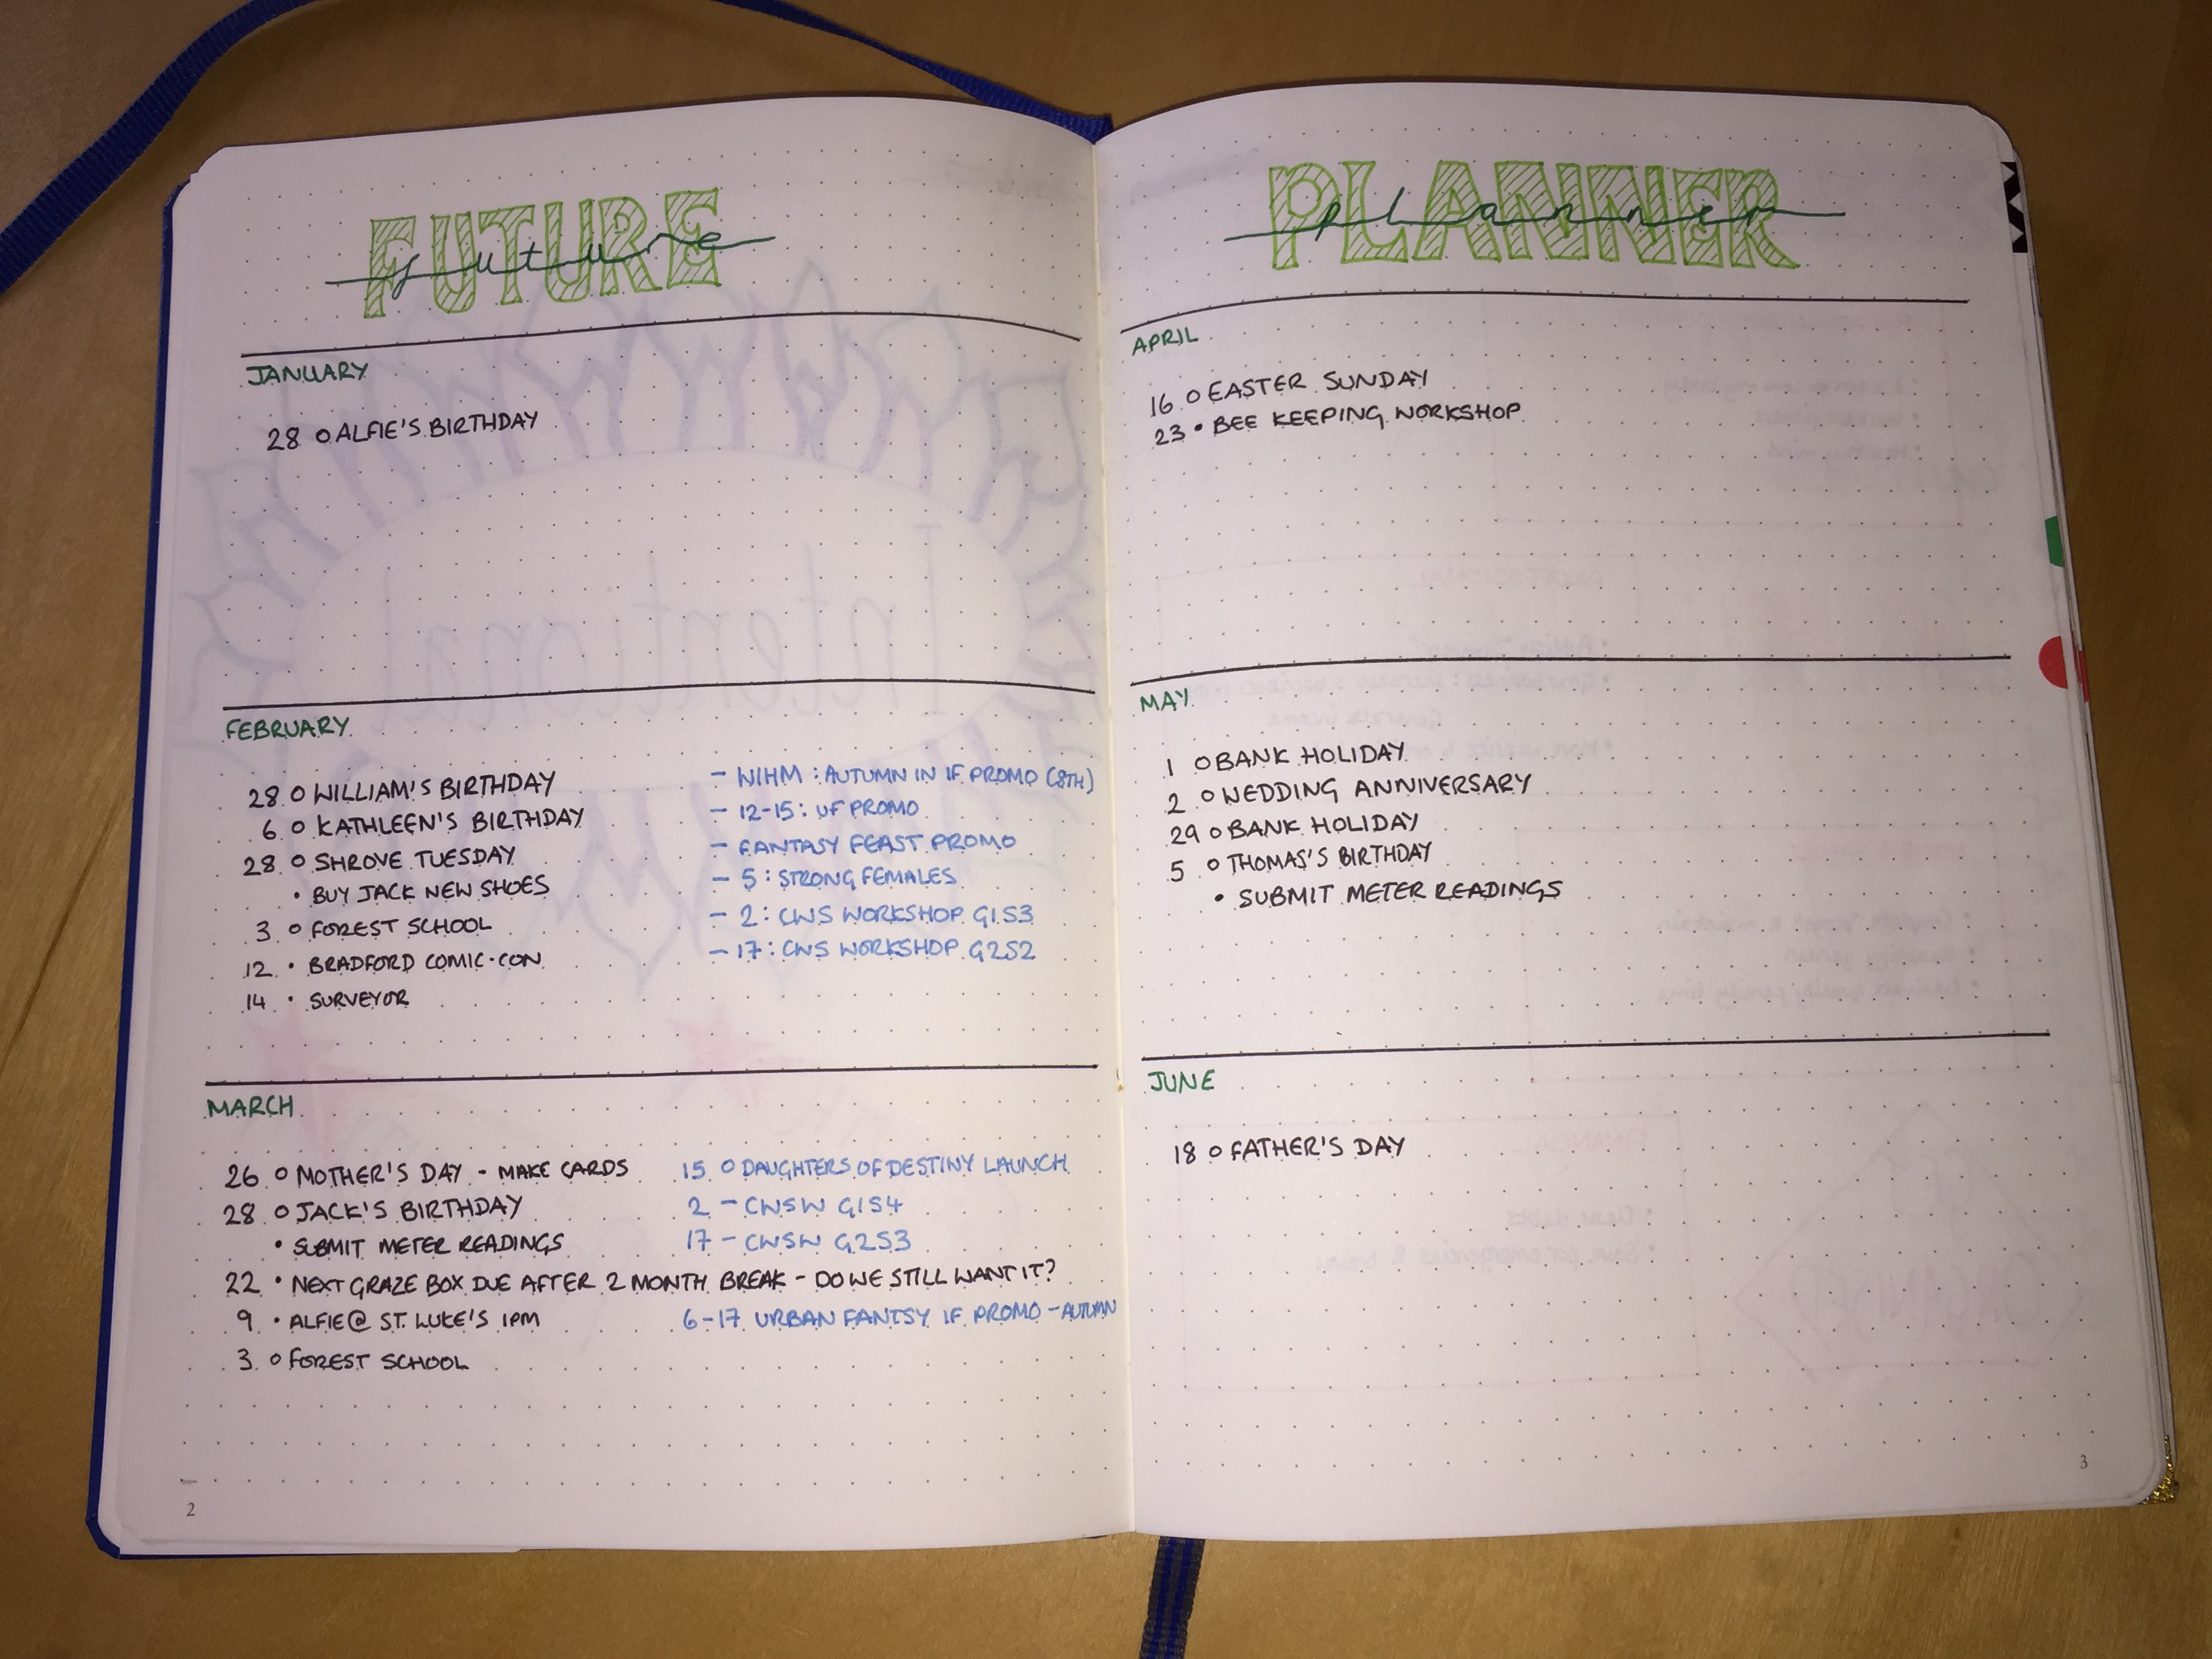 FUTURE
future
JANUARY
28 O ALFIE'S BIRTHDAY
FEBRUARY
28 O WILLIAM'S BIRTHDAY
6 O KATHLEEN'S BIRTHDAY
28 O SHROVE TUESDAY
• BUY JACK NEW SHOES
3 O FOREST SCHOOL
12 • BRADFORD COMIC-CON
14 • SURVEYOR
- WIHM : AUTUMN IN IF PROMO (8TH)
- 12-15: UF PROMO
- FANTASY FEAST PROMO
- 5: STRONG FEMALES
- 2: CWS WORKSHOP G1S3
- 17: CWS WORKSHOP G2S2
MARCH
26 O MOTHER'S DAY - MAKE CARDS
28 O JACK'S BIRTHDAY
• SUBMIT METER READINGS
22 • NEXT GRAZE BOX DUE AFTER 2 MONTH BREAK - DO WE STILL WANT IT?
9 • ALFIE @ ST. LUKE'S 1PM
3 O FOREST SCHOOL
15 O DAUGHTERS OF DESTINY LAUNCH
2 - CWSW G1S4
17 - CWSW G2S3
6-17 URBAN FANTSY IF PROMO - AUTUMN
2
PLANNER
planner
APRIL
16 O EASTER SUNDAY
23 • BEE KEEPING WORKSHOP
MAY
1 O BANK HOLIDAY
2 O WEDDING ANNIVERSARY
29 O BANK HOLIDAY
5 O THOMAS'S BIRTHDAY
• SUBMIT METER READINGS
JUNE
18 O FATHER'S DAY
3